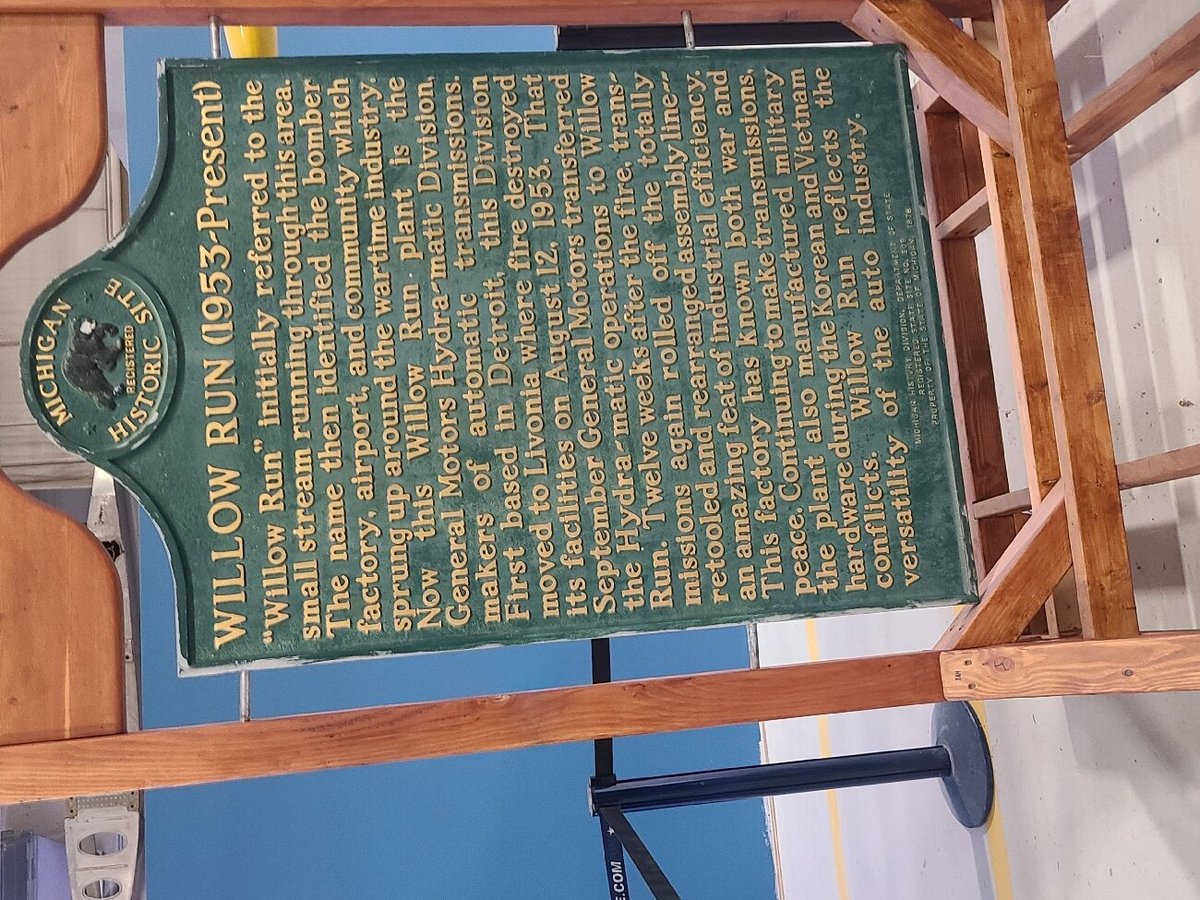 MICHIGAN
REGISTERED
HISTORIC SITE
WILLOW RUN (1953-Present)
"Willow Run" initially referred to the
small stream running through this area.
The name then identified the bomber
factory, airport, and community which
sprung up around the wartime industry.
Now this Willow Run plant is the
General Motors Hydra-matic Division,
makers of automatic transmissions.
First based in Detroit, this Division
moved to Livonia where fire destroyed
its facilities on August 12, 1953. That
September General Motors transferred
the Hydra-matic operations to Willow
Run. Twelve weeks after the fire, trans-
missions again rolled off the totally
retooled and rearranged assembly line--
an amazing feat of industrial efficiency.
This factory has known both war and
peace. Continuing to make transmissions,
the plant also manufactured military
hardware during the Korean and Vietnam
conflicts. Willow Run reflects the
versatility of the auto industry.
MICHIGAN HISTORY DIVISION, DEPARTMENT OF STATE
REGISTERED STATE SITE NO.
PROPERTY OF THE STATE OF MICHIGAN,
E.COM
TAH